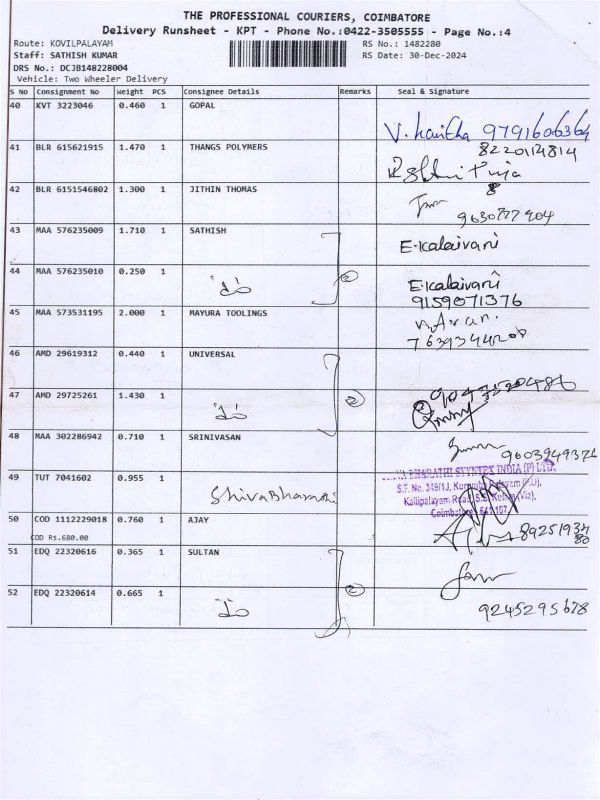 THE PROFESSIONAL COURIERS, COIMBATORE
Delivery Runsheet - KPT - Phone No.:0422-3505555 - Page No.:4
Route: KOVILPALAYAM
RS No.: 1482280
Staff: SATHISH KUMAR
RS Date: 30-Dec-2024
DRS No.: DCJB148228004
Vehicle: Two Wheeler Delivery
S No Consignment No Weight PCS Consignee Details Remarks Seal & Signature
40 KVT 3223046 0.460 1 GOPAL
9791606364
41 BLR 615621915 1.470 1 THANGS POLYMERS
8220114814
42 BLR 6151546802 1.300 1 JITHIN THOMAS
9630777904
43 MAA 576235009 1.710 1 SATHISH
E.Kalaivani
44 MAA 576235010 0.250 1
②
E.Kalaivani
9159071376
45 MAA 573531195 2.000 1 MAYURA TOOLINGS
46 AMD 29619312 0.440 1 UNIVERSAL
47 AMD 29725261 1.430 1
②
48 MAA 302286942 0.710 1 SRINIVASAN
49 TUT 7041602 0.955 1
BHARATHI SYNTEX INDIA (P) LTD.
S.F. No. 349/1J,
Kallipalayam Road,
50 COD 1112229018 0.760 1 AJAY
COD Rs.680.00
51 EDQ 22320616 0.365 1 SULTAN
52 EDQ 22320614 0.665 1
②
9245295678